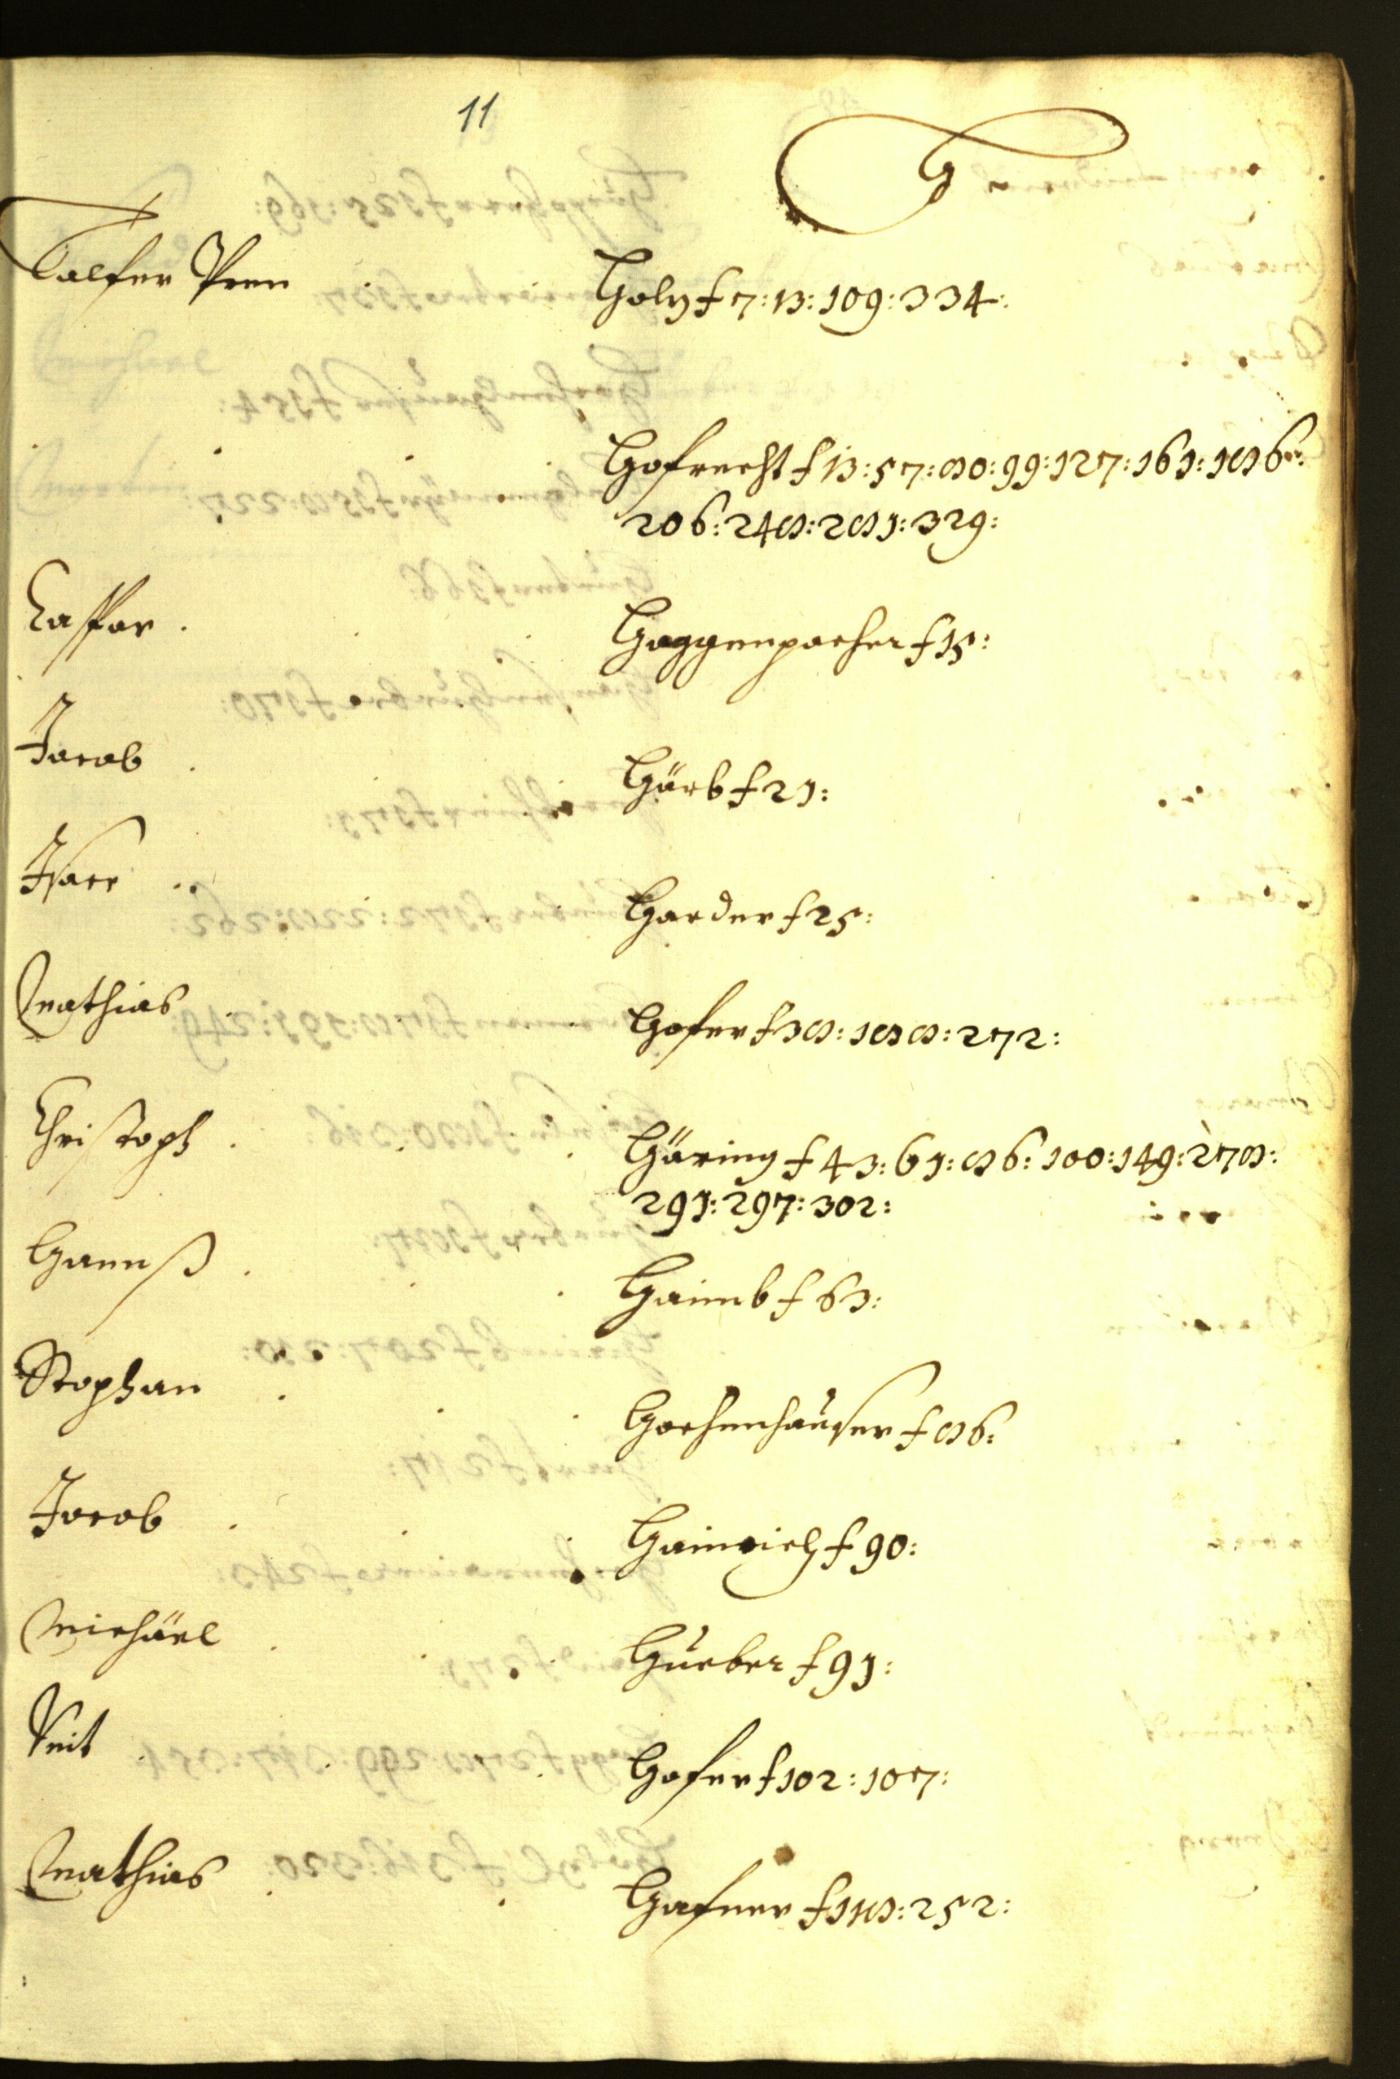 11
H
Talfer Pren Holz f 7: 13: 109: 334:
Hofrecht f 13: 57: 80: 99: 127: 161: 186:
206: 248: 281: 329:
Caspar. Haggenpacher f 15:
Jacob. Härb f 21:
Isacc Harder f 25:
Mathias Hofer f 38: 188: 272:
Christoph. Häring f 43: 61: 86: 100: 149: 278:
291: 297: 302:
Hannß. Haimb f 63:
Stephan Hochenhauser f 86:
Jacob Hainrich f 90:
Michäel Hueber f 91:
Veit Hofer f 102: 107:
Mathias Hafner f 118: 252: